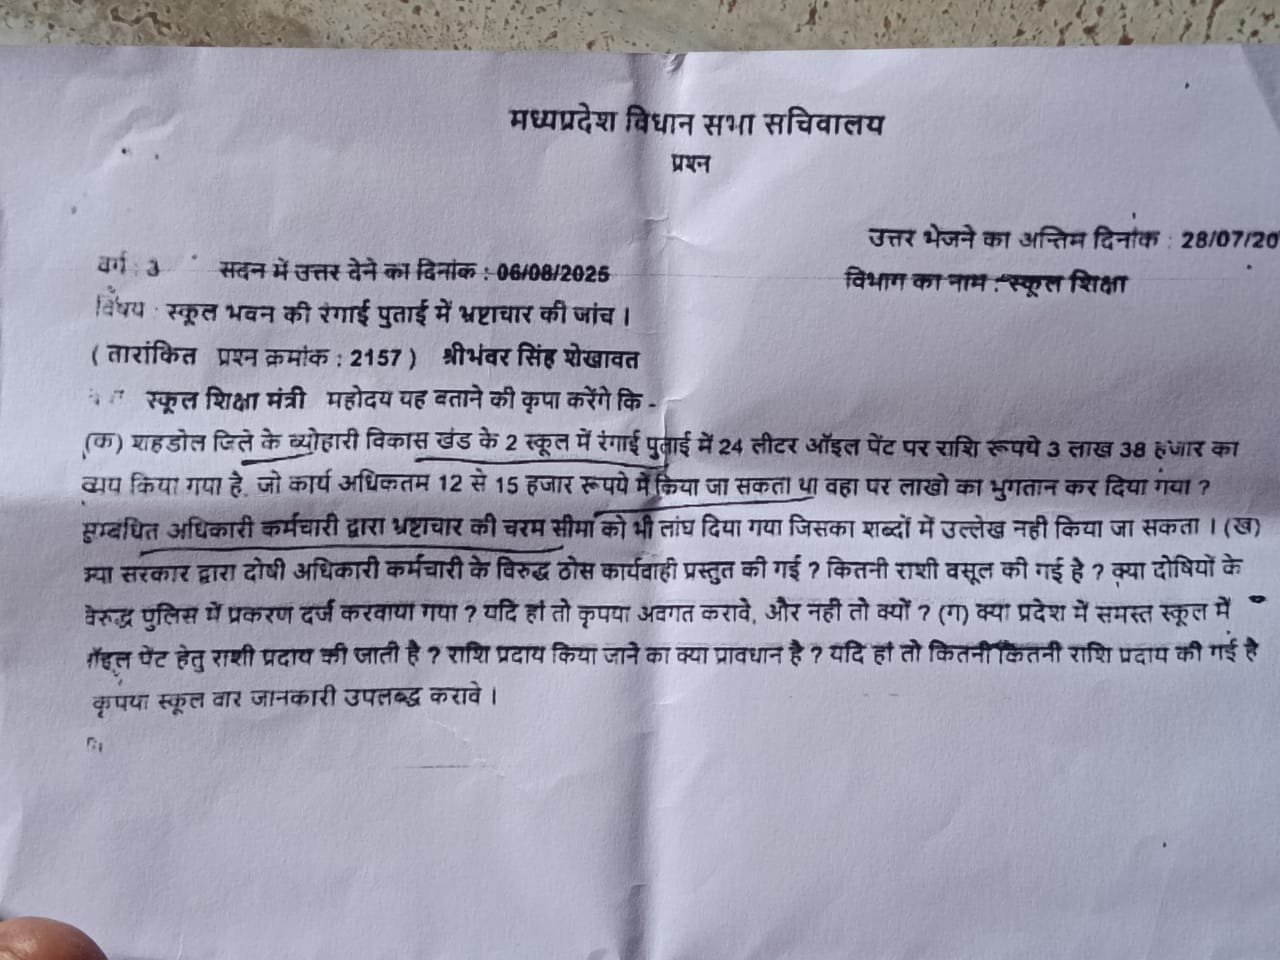 मध्यप्रदेश विधान सभा सचिवालय
प्रश्न
उत्तर भेजने का अन्तिम दिनांक : 28/07/20
वर्ग : 3 सदन में उत्तर देने का दिनांक : 06/08/2025
विभाग का नाम : स्कूल शिक्षा
विषय : स्कूल भवन की रंगाई पुताई में भ्रष्टाचार की जांच ।
( तारांकित प्रश्न क्रमांक : 2157 ) श्रीभंवर सिंह शेखावत
स्कूल शिक्षा मंत्री महोदय यह बताने की कृपा करेंगे कि -
(क) शहडोल जिले के ब्योहारी विकास खंड के 2 स्कूल में रंगाई पुताई में 24 लीटर ऑइल पेंट पर राशि रूपये 3 लाख 38 हजार का
व्यय किया गया है, जो कार्य अधिकतम 12 से 15 हजार रूपये में किया जा सकता था वहा पर लाखो का भुगतान कर दिया गया ?
सम्बधित अधिकारी कर्मचारी द्वारा भ्रष्टाचार की चरम सीमा को भी लांघ दिया गया जिसका शब्दों में उल्लेख नही किया जा सकता । (ख)
क्या सरकार द्वारा दोषी अधिकारी कर्मचारी के विरुद्ध ठोस कार्यवाही प्रस्तुत की गई ? कितनी राशी वसूल की गई है ? क्या दोषियों के
वेरुद्ध पुलिस में प्रकरण दर्ज करवाया गया ? यदि हां तो कृपया अवगत करावे, और नही तो क्यों ? (ग) क्या प्रदेश में समस्त स्कूल में
ऑइल पेंट हेतु राशी प्रदाय की जाती है ? राशि प्रदाय किया जाने का क्या प्रावधान है ? यदि हां तो कितनी कितनी राशि प्रदाय की गई है
कृपया स्कूल वार जानकारी उपलब्द्ध करावे ।